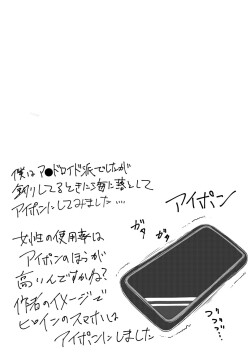 僕はア●ドロイド派でしたが
釣りしてるときに海に落として
アイポンにしてみました…
女性の使用率は
アイポンのほうが
高いんですかね?
作者のイメージで
ヒロインのスマホは
アイポンにしました
アイポン
ガタ
ガタ
ブブッ…